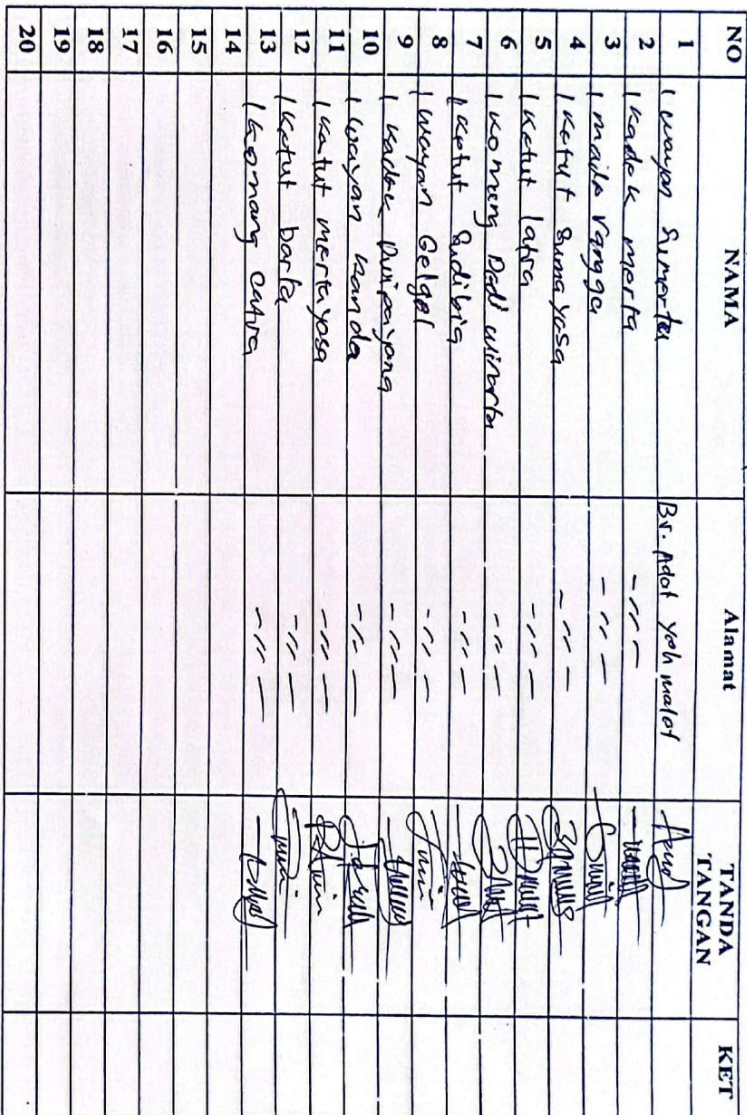 NO NAMA Alamat TANDA TANGAN KET
1 I wayan Sumerta Br. Adat yeh malet
2 I kadek merta -〃-
3 I made rangga -〃-
4 I ketut Suma yasa -〃-
5 I ketut latra -〃-
6 I komang Dadi winarta -〃-
7 I ketut Sudibia -〃-
8 I wayan Gelgel -〃-
9 I kadek -〃-
10 I wayan wanda -〃-
11 I ketut merta yasa -〃-
12 I ketut barta -〃-
13 I komang catra -〃-
14
15
16
17
18
19
20